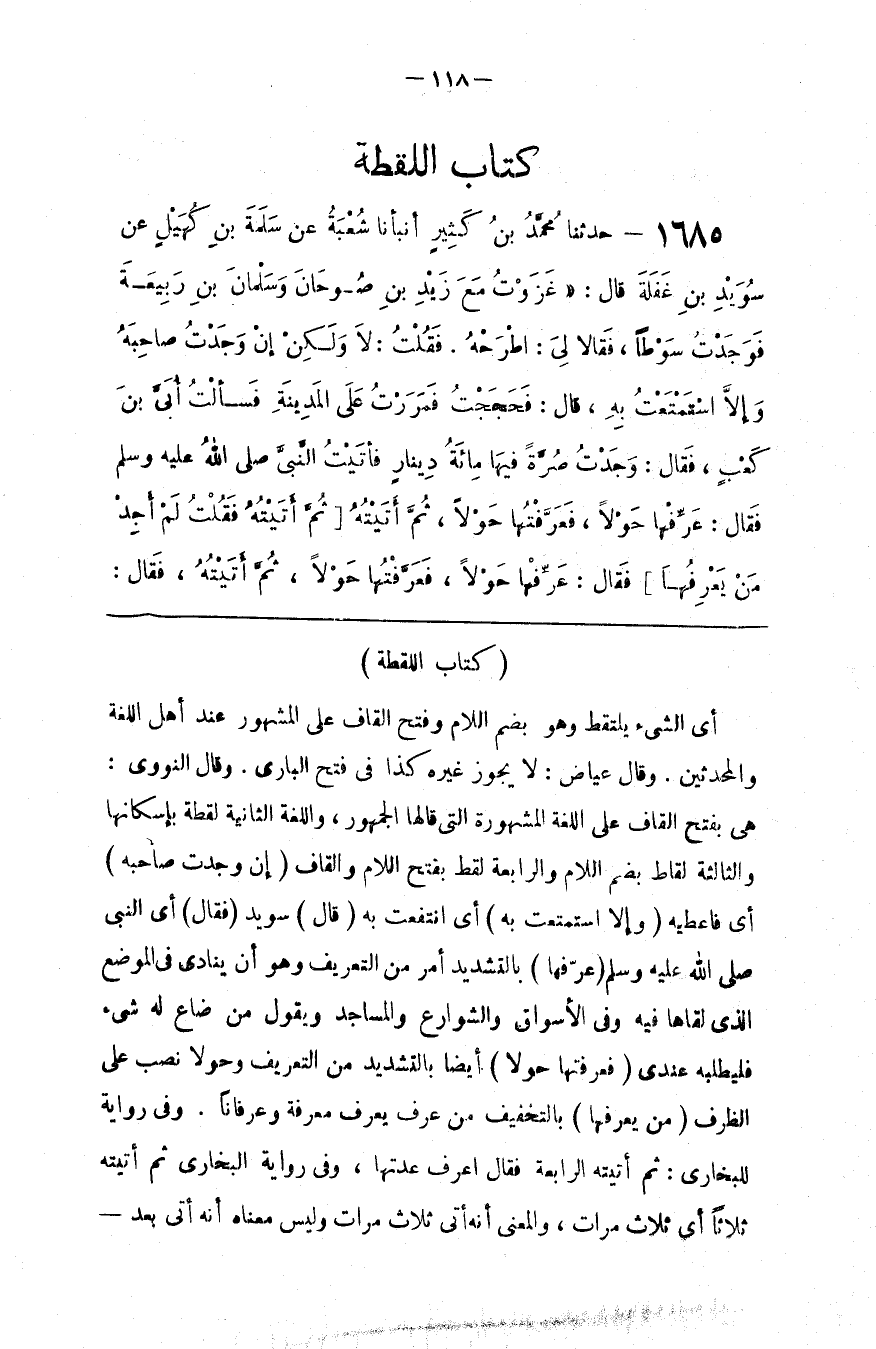 — ١١٨ —
كتاب اللقطة
١٦٨٥ — حدثنا مُحمَّدُ بنُ كَثِيرٍ أنبأنا شُعْبَةُ عن سَلَمَةَ بنِ كُهَيْلٍ عن
سُوَيْدِ بنِ غَفَلَةَ قال : « غَزَوْتُ مَعَ زَيْدِ بنِ صُـوحَانَ وَسَلْمانَ بنِ رَبِيعَـةَ
فَوَجَدْتُ سَوْطاً ، فَقالا لِيَ : اطْرَحْهُ . فَقُلْتُ : لاَ وَلَـكِنْ إنْ وَجَدْتُ صاحِبَهُ
وَإلاَّ اسْتَمْتَعْتُ بِهِ ، قال : فَحَجَجْتُ فَمَرَرْتُ عَلَى المَدِينَةِ فَسـألْتُ أُبَىَّ بنَ
كَعْبٍ ، فَقال : وَجَدْتُ صُرَّةً فيهَا مِائَةُ دِينارٍ فأتَيْتُ النَّبىَّ صلى اللهُ عليه وسلم
فَقال : عَرِّفْها حَوْلاً ، فَعَرَّفْتُها حَوْلاً ، ثُمَّ أَتَيْتُهُ [ ثُمَّ أَتَيْتُهُ فَقُلْتُ لَمْ أَجِدْ
مَنْ يَعْرِفُهـاَ ] فَقال : عَرِّفْها حَوْلاً ، فَعَرَّفْتُها حَوْلاً ، ثُمَّ أَتَيْتُهُ ، فَقال :
( كتاب اللقطة )
أى الشىء يلتقط وهو بضم اللام وفتح القاف على المشهور عند أهل اللغة
والمحدثين . وقال عياض : لا يجوز غيره كذا فى فتح البارى . وقال النووى :
هى بفتح القاف على اللغة المشهورة التى قالها الجمهور ، واللغة الثانية لقطة بإسكانها
والثالثة لقاط بضم اللام والرابعة لقط بفتح اللام والقاف ( إن وجدت صاحبه )
أى فاعطيه ( وإلا استمتعت به ) أى انتفعت به ( قال ) سويد ( فقال ) أى النبى
صلى الله عليه وسلم ( عرّفها ) بالتشديد أمر من التعريف وهو أن ينادى فى الموضع
الذى لقاها فيه وفى الأسواق والشوارع والمساجد ويقول من ضاع له شىء
فليطلبه عندى ( فعرفتها حولا ) أيضا بالتشديد من التعريف وحولا نصب على
الظرف ( من يعرفها ) بالتخفيف من عرف يعرف معرفة وعرفاناً . وفى رواية
للبخارى : ثم أتيته الرابعة فقال اعرف عدتها ، وفى رواية البخارى ثم أتيته
ثلاثاً أي ثلاث مرات ، والمعنى أنه أتى ثلاث مرات وليس معناه أنه أتى بعد —